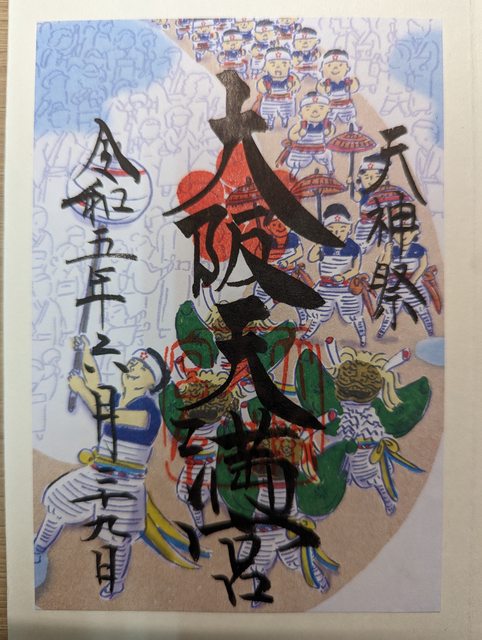 天神祭
大阪天満宮
令和五年六月二十九日